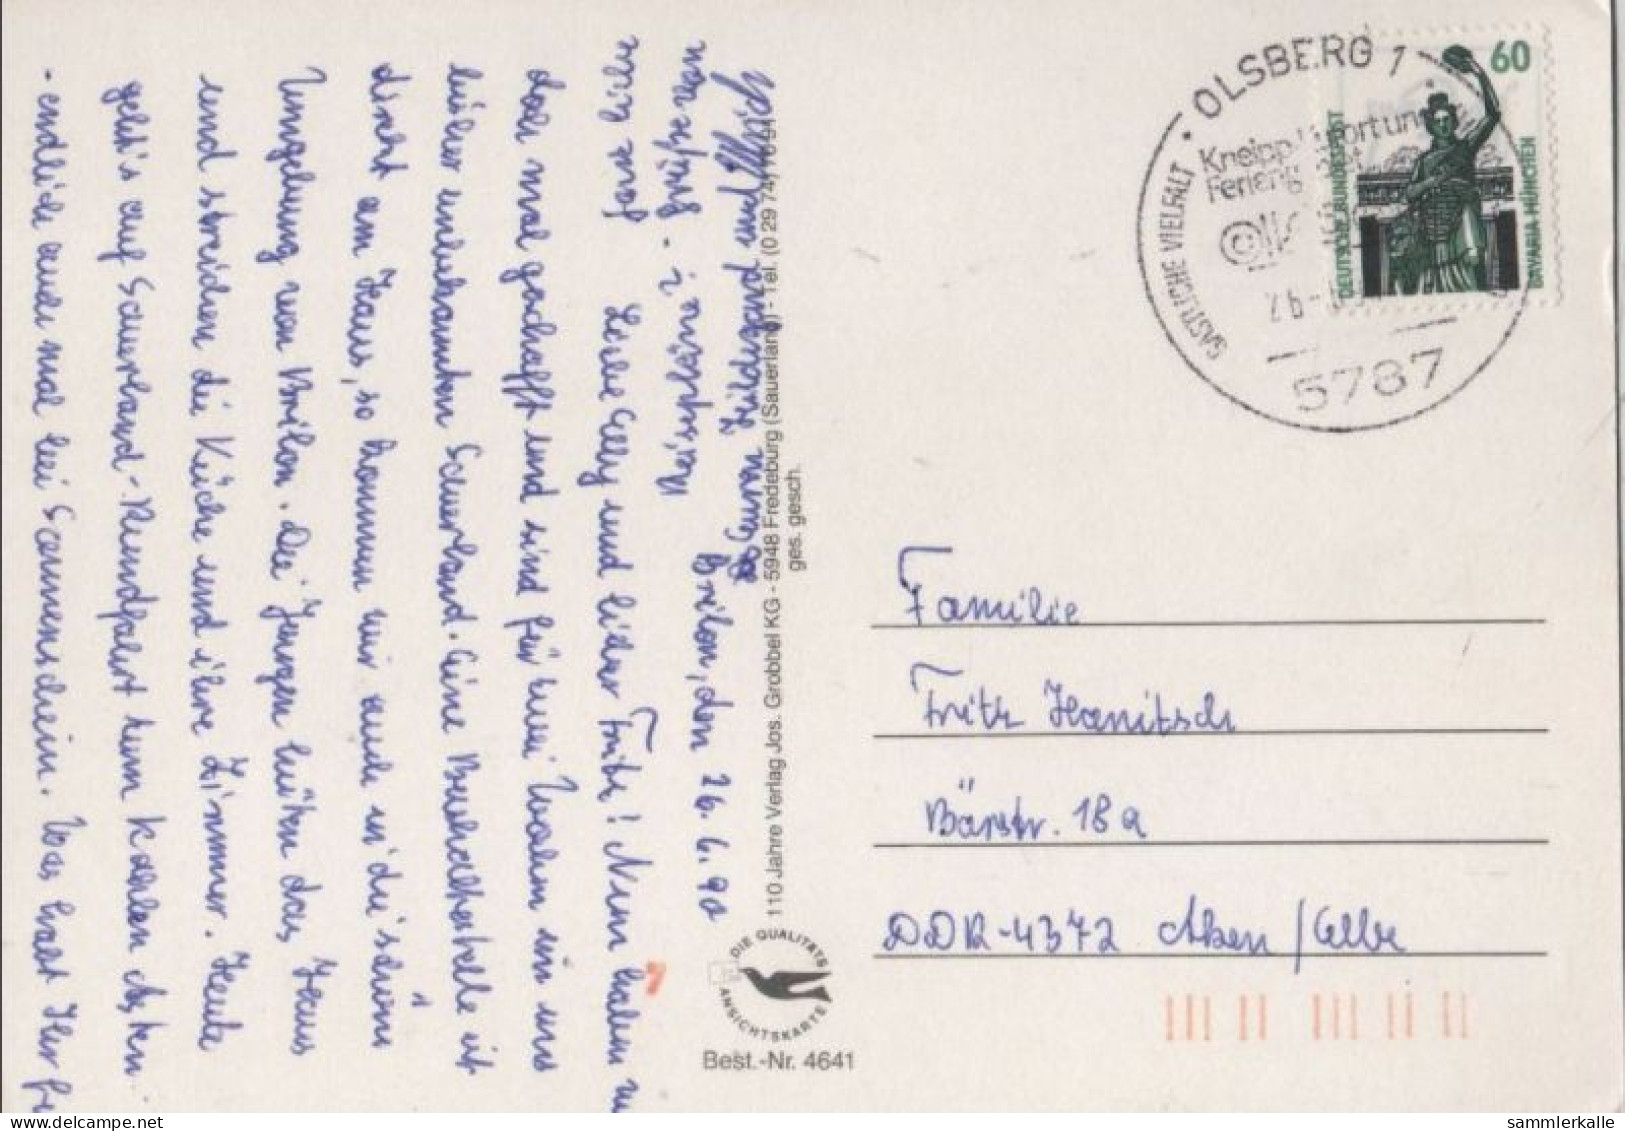 Brilon, den 26.6.90
Liebe Elly und lieber Fritz! Nun haben
doch mal geschafft und sind für zwei Wochen im uns
bisher unbekannten Sauerland. Eine Bushaltestelle ist
direkt am Haus, so kommen wir auch in die schöne
Umgebung von Brilon. Die Jungen hüten das Haus
und streichen die Küche und ihre Zimmer. Heute
geht's auf Sauerland-Rundfahrt zum Kahlen Asten.
endlich auch mal bei Sonnenschein. Was habt Ihr
ganz liebe
Grüße von
Euren Hildegard und Ulrich
110 Jahre Verlag Jos. Grobbel KG - 5948 Fredeburg (Sauerland) - Tel. (0 29 74)
ges. gesch.
DIE QUALITÄTS
ANSICHTSKARTE
Best.-Nr. 4641
OLSBERG 1
GASTLICHE VIELFALT
Kneipp
5787
60
DEUTSCHE BUNDESPOST
BAVARIA MÜNCHEN
Familie
Fritz Hanitsch
Bärstr. 18a
DDR-4372 Aken/Elbe
sammlerkalle